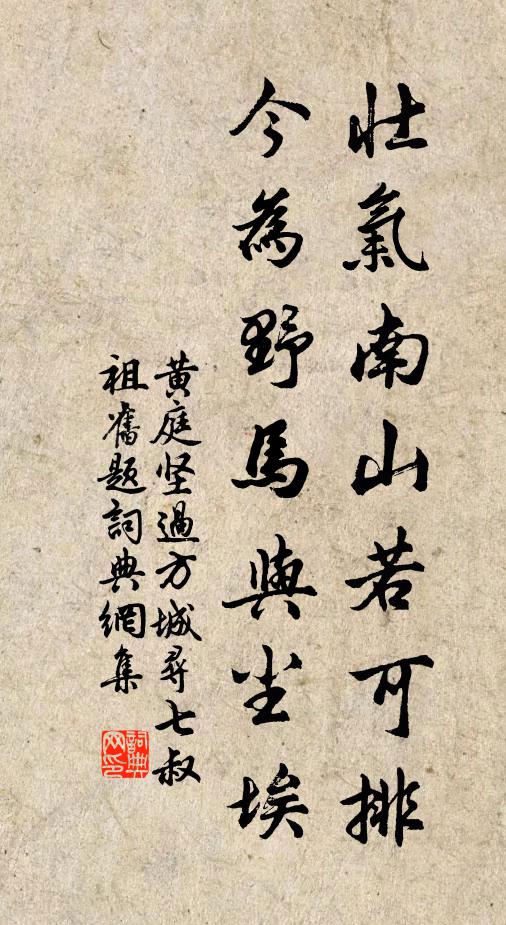 壯氣南山若可排
今為野馬與尘埃
黄庭坚過方城尋七叔
祖舊題詞典網集
詞典网印